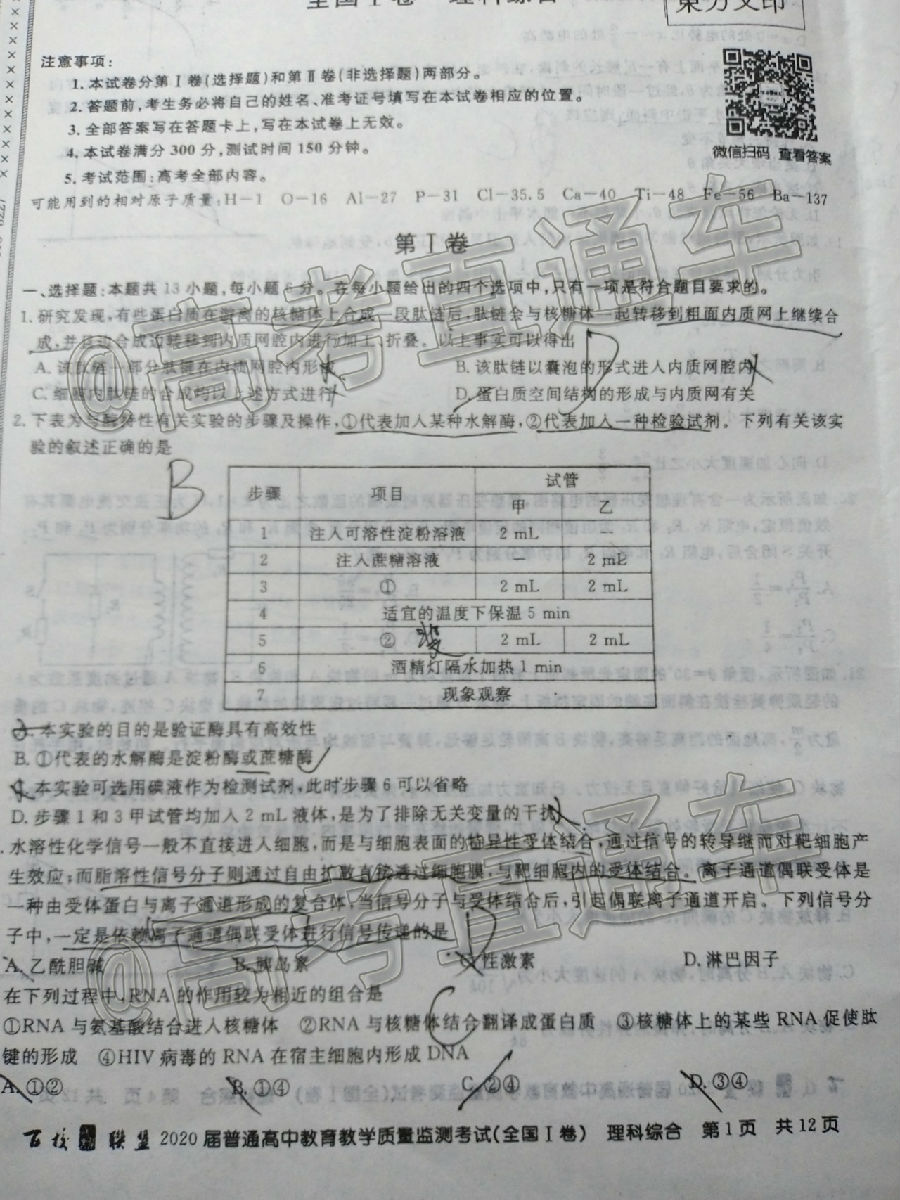 全国Ⅰ卷 理科综合
东方文印
注意事项:
1.本试卷分第Ⅰ卷(选择题)和第Ⅱ卷(非选择题)两部分。
2.答题前,考生务必将自己的姓名、准考证号填写在本试卷相应的位置。
3.全部答案写在答题卡上,写在本试卷上无效。
4.本试卷满分300分,测试时间150分钟。
5.考试范围:高考全部内容。
微信扫码 查看答案
可能用到的相对原子质量:H-1 O-16 Al-27 P-31 Cl-35.5 Ca-40 Ti-48 Fe-56 Ba-137
第Ⅰ卷
一、选择题:本题共13小题,每小题6分。在每小题给出的四个选项中,只有一项是符合题目要求的。
1.研究发现,有些蛋白质在游离的核糖体上合成一段肽链后,肽链会与核糖体一起转移到粗面内质网上继续合
成,并且边合成边转移到内质网腔内进行加工、折叠。以上事实可以得出
A.该肽链一部分肽键在内质网腔内形成 B.该肽链以囊泡的形式进入内质网腔内
C.细胞内肽链的合成均以上述方式进行 D.蛋白质空间结构的形成与内质网有关
D
2.下表为与酶特性有关实验的步骤及操作,①代表加入某种水解酶,②代表加入一种检验试剂。下列有关该实
验的叙述正确的是
B
步骤 项目 试管
甲 乙
1 注入可溶性淀粉溶液 2 mL —
2 注入蔗糖溶液 — 2 mL
3 ① 2 mL 2 mL
4 适宜的温度下保温 5 min
5 ② 2 mL 2 mL
6 酒精灯隔水加热 1 min
7 现象观察
A.本实验的目的是验证酶具有高效性
B.①代表的水解酶是淀粉酶或蔗糖酶
C.本实验可选用碘液作为检测试剂,此时步骤6可以省略
D.步骤1和3甲试管均加入2 mL液体,是为了排除无关变量的干扰
.水溶性化学信号一般不直接进入细胞,而是与细胞表面的特异性受体结合,通过信号的转导继而对靶细胞产
生效应;而脂溶性信号分子则通过自由扩散直接透过细胞膜,与靶细胞内的受体结合。离子通道偶联受体是
一种由受体蛋白与离子通道形成的复合体,当信号分子与受体结合后,引起偶联离子通道开启。下列信号分
子中,一定是依赖离子通道偶联受体进行信号传递的是
A.乙酰胆碱 B.胰岛素 C.性激素 D.淋巴因子
在下列过程中,RNA的作用较为相近的组合是
C
①RNA与氨基酸结合进入核糖体 ②RNA与核糖体结合翻译成蛋白质 ③核糖体上的某些RNA促使肽
键的形成 ④HIV病毒的RNA在宿主细胞内形成DNA
A.①② B.①④ C.②④ D.③④
百校联盟 2020届普通高中教育教学质量监测考试(全国Ⅰ卷) 理科综合 第1页 共12页
@高考直通车
@高考直通车